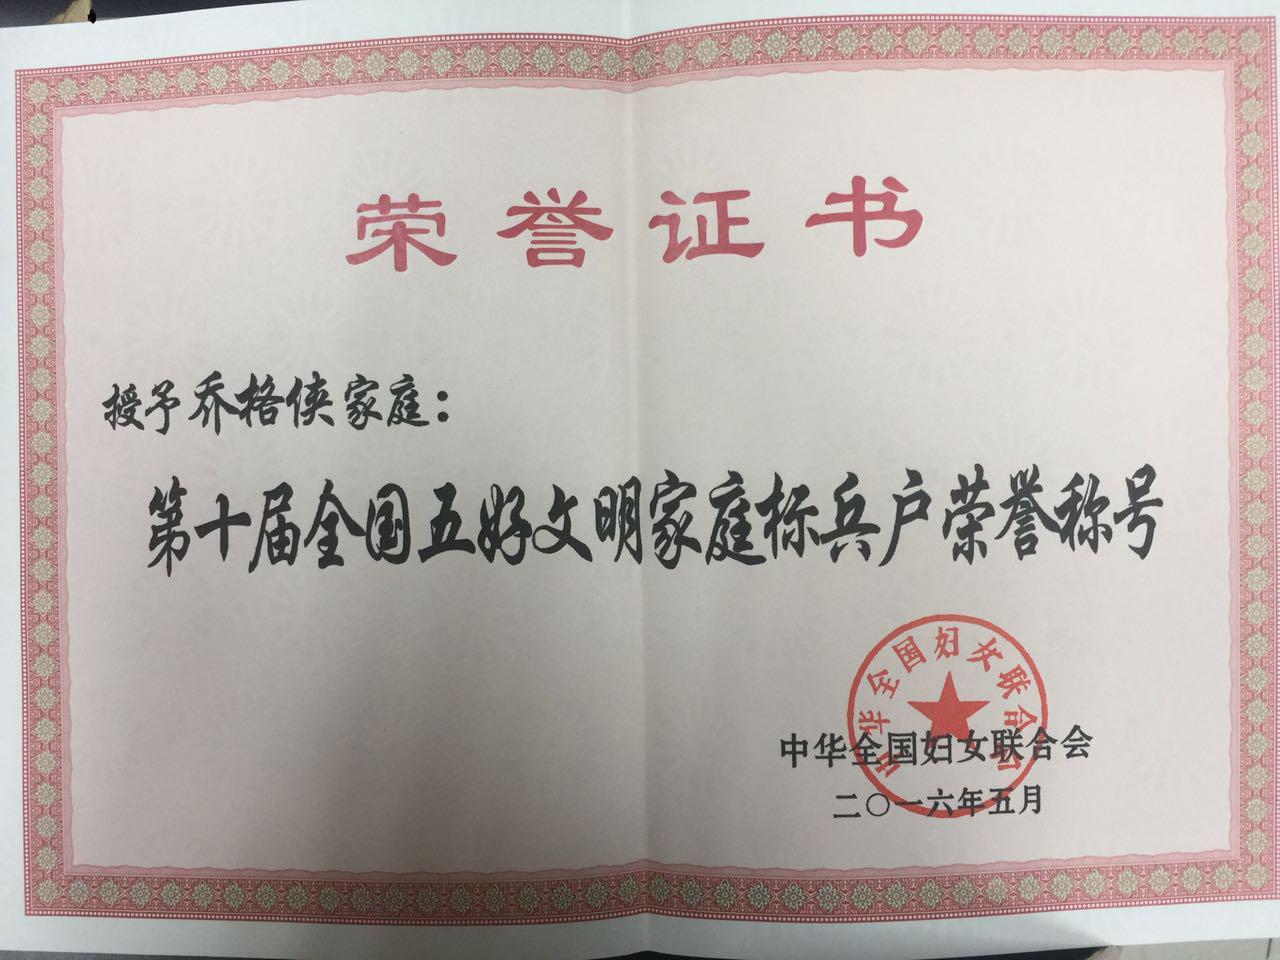 荣誉证书
授予乔格侠家庭：
第十届全国五好文明家庭标兵户荣誉称号
中华全国妇女联合会
中华全国妇女联合会
二〇一六年五月